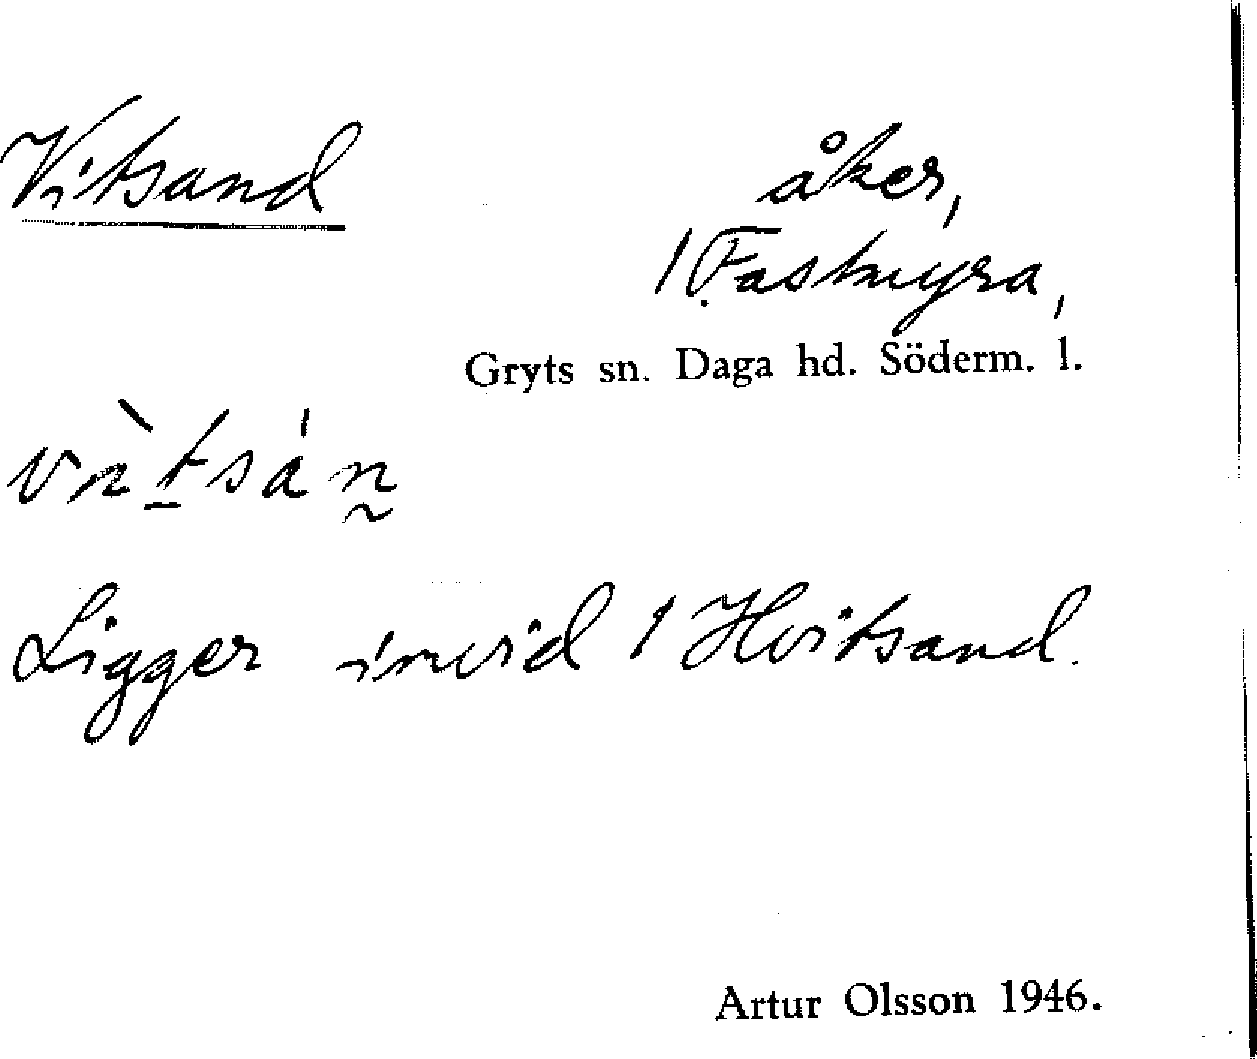 Vitsand
åker,
1 Fastmyra,
Gryts sn. Daga hd. Söderm. l.
Ligger invid 1 Hvitsand.
Artur Olsson 1946.